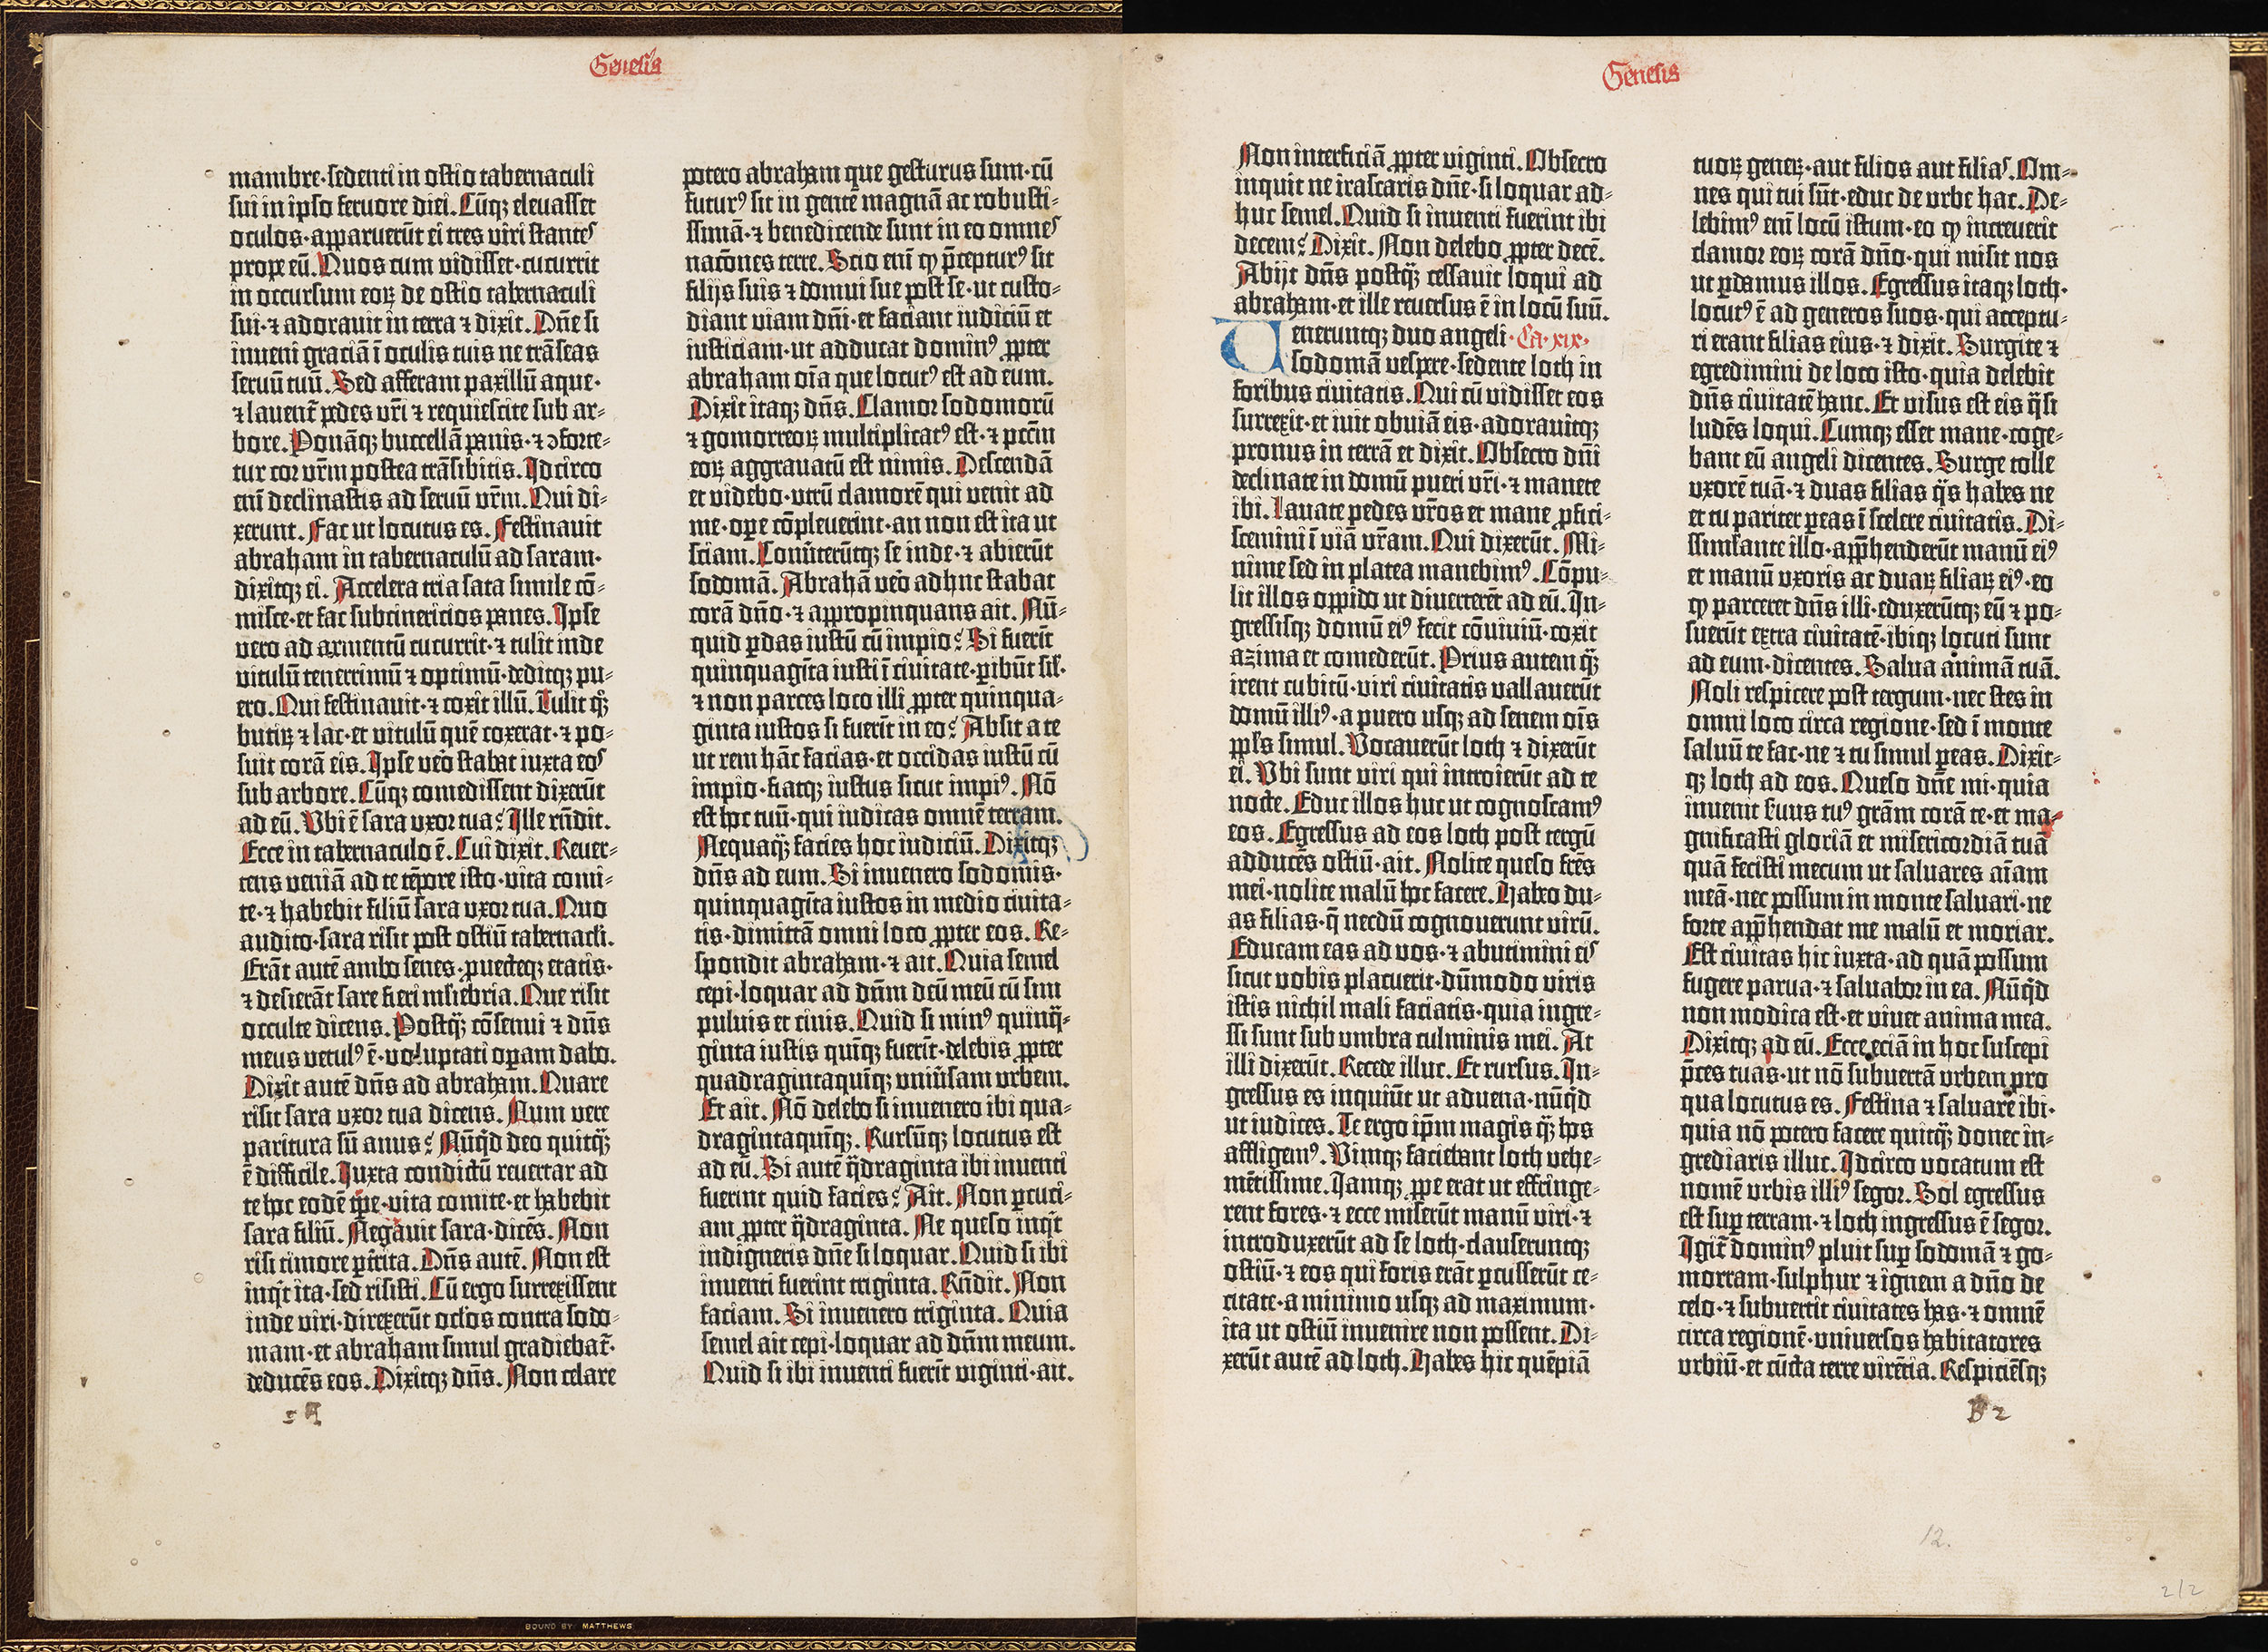 Genesis
mambre·sedenti in ostio tabernaculi
sui in ipso feruore diei. Cūqꝫ eleuasset
oculos·apparuerūt ei tres viri stantes
prope eū. Quos cum vidisset·cucurrit
in occursum eoꝝ de ostio tabernaculi
sui·⁊ adorauit in terra ⁊ dixit. Dn̄e si
inueni graciā ī oculis tuis ne trāseas
seruū tuū. Sed afferam pauxillū aque·
⁊ lauent̄ pedes vr̄i ⁊ requiescite sub ar⸗
bore. Ponāqꝫ buccellā panis·⁊ ↄforte⸗
tur cor vr̄m postea trāsibitis. Idcirco
enī declinastis ad seruū vr̄m. Qui di⸗
xerunt. Fac ut locutus es. Festinauit
abraham in tabernaculū ad saram·
dixitqꝫ ei. Accelera tria sata simile cō⸗
misce·et fac subcinericios panes. Ipse
vero ad armentū cucurrit·⁊ tulit inde
vitulū tenerrimū ⁊ optimū·deditqꝫ pu⸗
ero. Qui festinauit·⁊ coxit illū. Tulit qꝫ̄
butiꝝ ⁊ lac·et vitulū quē coxerat·⁊ po⸗
suit corā eis. Ipse vēo stabat iuxta eos
sub arbore. Cūqꝫ comedissent dixerūt
ad eū. Vbi ē sara vxor tua? Ille rn̄dit.
Ecce in tabernaculo ē. Cui dixit. Reuer⸗
tens veniā ad te tēpore isto·vita comi⸗
te·⁊ habebit filiū sara vxor tua. Quo
audito·sara risit post ostiū tabernacli.
Erāt autē ambo senes·puecteqꝫ etatis·
⁊ desierāt sare fieri mliebria. Que risit
occulte dicens. Postqꝫ̄ cōsenui ⁊ dn̄s
meus vetulꝰ ē·voluptati opam dabo.
Dixit autē dn̄s ad abraham. Quare
risit sara vxor tua dicens. Num vere
paritura sū anus? Nūqͥd deo quitqꝫ̄
ē difficile. Iuxta condictū reuertar ad
te hoc eodē tp̄e·vita comite·et habebit
sara filiū. Negauit sara·dicēs. Non
risi timore ꝑtrita. Dn̄s autē. Non est
inqͥt ita·sed risisti. Cū ergo surrexissent
inde viri·direxerūt oclos contra sodo⸗
mam·et abraham simul gradiebat̄·
deducēs eos. Dixitqꝫ dn̄s. Non celare
potero abraham que gesturus sum·cū
futurꝰ sit in gentē magnā ac robusti⸗
ssimā·⁊ benedicende sunt in eo omnes
nacōnes terre. Scio enī ꝙ p̄cepturꝰ sit
filijs suis ⁊ domui sue post se·ut custo⸗
diant viam dn̄i·et faciant iudiciū et
iusticiam·ut adducat dominꝰ ꝓpter
abraham oīa que locutꝰ est ad eum.
Dixit itaqꝫ dn̄s. Clamor sodomorū
⁊ gomorreoꝝ multiplicatꝰ est·⁊ pccm̄
eoꝝ aggrauatū est nimis. Descendā
et videbo·vtrū clamorē qui venit ad
me·oꝑe cōpleuerint·an non est ita ut
sciam. Conūterūtqꝫ se inde·⁊ abierūt
sodomā. Abrahā vēo adhuc stabat
corā dn̄o·⁊ appropinquans ait. Nū⸗
quid ꝑdas iustū cū impio? Si fuerīt
quinquagīta iusti ī ciuitate·ꝑibūt sil̄·
⁊ non parces loco illi ꝓpter quinqua⸗
ginta iustos si fuerīt in eo? Absit a te
ut rem hāc facias·et occidas iustū cū
impio·fiatqꝫ iustus sicut impiꝰ. Nō
est hoc tuū·qui iudicas omnē terram.
Nequaqꝫ̄ facies hoc iudiciū. Dixitqꝫ
dn̄s ad eum. Si inuenero sodomis·
quinquagīta iustos in medio ciuita⸗
tis·dimittā omni loco ꝓpter eos. Re⸗
spondit abraham·⁊ ait. Quia semel
cepi·loquar ad dn̄m deū meū cū sim
puluis et cinis. Quid si minꝰ quinqͣ⸗
ginta iustis quīqꝫ fuerīt·delebis ꝓpter
quadragintaquīqꝫ vniūsam vrbem.
Et ait. Nō delebo si inuenero ibi qua⸗
dragintaquīqꝫ. Rursūqꝫ locutus est
ad eū. Si autē qͣdraginta ibi inuenti
fuerint quid facies? Ait. Non ꝑcuci⸗
am ꝓpter qͣdraginta. Ne queso inqͥt
indigneris dn̄e si loquar. Quid si ibi
inuenti fuerint triginta. Rn̄dit. Non
faciam. Si inuenero triginta. Quia
semel ait cepi·loquar ad dn̄m meum.
Quid si ibi inuenti fuerīt viginti·ait.
Genesis
Non interficiā ꝓpter viginti. Obsecro
inquit ne irascaris dn̄e·si loquar ad⸗
huc semel. Quid si inuenti fuerint ibi
decem? Dixit. Non delebo ꝓpter decē.
Abijt dn̄s postqꝫ̄ cessauit loqui ad
abraham·et ille reuersus ē in locū suū.
Ueneruntqꝫ duo angeli· Ca·xix·
sodomā vespere·sedente loth in
foribus ciuitatis. Qui cū vidisset eos
surrexit·et iuit obuiā eis·adorauitqꝫ
pronus in terrā et dixit. Obsecro dn̄i
declinate in domū pueri vr̄i·⁊ manete
ibi. Lauate pedes vr̄os et mane ꝓfici⸗
scemini ī viā vr̄am. Qui dixerūt. Mi⸗
nime sed in platea manebimꝰ. Cōpu⸗
lit illos oppido ut diuerterēt ad eū. In⸗
gressisqꝫ domū eiꝰ fecit cōuiuiū·coxit
azima et comederūt. Prius autem qꝫ̄
irent cubitū·viri ciuitatis vallauerūt
domū illiꝰ·a puero usqꝫ ad senem oīs
ppl̄s simul. Vocauerūt loth ⁊ dixerūt
ei. Vbi sunt viri qui introierūt ad te
nocte. Educ illos huc ut cognoscamꝰ
eos. Egressus ad eos loth post tergū
adducēs ostiū·ait. Nolite queso fr̄es
mei·nolite malū hoc facere. Habeo du⸗
as filias·q̄ necdū cognouerunt virū.
Educam eas ad vos·⁊ abutimini eis
sicut vobis placuerit·dūmodo viris
istis nichil mali faciatis·quia ingre⸗
ssi sunt sub umbra culminis mei. At
illi dixerūt. Recede illuc. Et rursus. In⸗
gressus es inquiūt ut aduena·nūqͥd
ut iudices. Te ergo ip̄m magis qꝫ̄ hos
affligemꝰ. Vimqꝫ faciebant loth vehe⸗
mētissime. Iamqꝫ ꝓpe erat ut effringe⸗
rent fores·⁊ ecce miserūt manū viri·⁊
introduxerūt ad se loth·clauseruntqꝫ
ostiū·⁊ eos qui foris erāt ꝑcusserūt ce⸗
citate·a minimo usqꝫ ad maximum·
ita ut ostiū inuenire non possent. Di⸗
xerūt autē ad loth. Habes hic quēpiā
tuoꝝ geneꝝ·aut filios aut filias. Om⸗
nes qui tui sūt·educ de vrbe hac. De⸗
lebimꝰ enī locū istum·eo ꝙ increuerit
clamor eoꝝ corā dn̄o·qui misit nos
ut ꝑdamus illos. Egressus itaqꝫ loth·
locutꝰ ē ad generos suos·qui acceptu⸗
ri erant filias eius·⁊ dixit. Surgite ⁊
egredimini de loco isto·quia delebit
dn̄s ciuitatē hanc. Et visus est eis qͣsi
ludēs loqui. Cumqꝫ esset mane·coge⸗
bant eū angeli dicentes. Surge tolle
vxorē tuā·⁊ duas filias qͣs habes ne
et tu pariter ꝑeas ī scelere ciuitatis. Di⸗
ssimłante illo·app̄henderūt manū eiꝰ
et manū vxoris ac duaꝝ filiaꝝ eiꝰ·eo
ꝙ parceret dn̄s illi·eduxerūtqꝫ eū ⁊ po⸗
suerūt extra ciuitatē·ibiqꝫ locuti sunt
ad eum·dicentes. Salua animā tuā.
Noli respicere post tergum·nec stes in
omni loco circa regione·sed ī monte
saluū te fac·ne ⁊ tu simul ꝑeas. Dixit⸗
qꝫ loth ad eos. Queso dn̄e mi·quia
inuenit ẜuus tuꝰ grām corā te·et ma⸗
gnificasti gloriā et misericordiā tuā
quā fecisti mecum ut saluares aīam
meā·nec possum in monte saluari·ne
forte app̄hendat me malū et moriar.
Est ciuitas hic iuxta·ad quā possum
fugere parua·⁊ saluabor in ea. Nūqͥd
non modica est·et viuet anima mea.
Dixitqꝫ ad eū. Ecce eciā in hoc suscepi
p̄ces tuas·ut nō subuertā vrbem pro
qua locutus es. Festina ⁊ saluare ibi·
quia nō potero facere quitqꝫ̄ donec in⸗
grediaris illuc. Idcirco vocatum est
nomē vrbis illiꝰ segor. Sol egressus
est suꝑ terram·⁊ loth ingressus ē segor.
Igit̄ dominꝰ pluit suꝑ sodomā ⁊ go⸗
morram·sulphur ⁊ ignem a dn̄o de
celo·⁊ subuertit ciuitates has·⁊ omnē
circa regionē·vniuersos habitatores
vrbiū·et cūcta terre virētia. Respiciēsqꝫ
12.
2/2
BOUND BY MATTHEWS